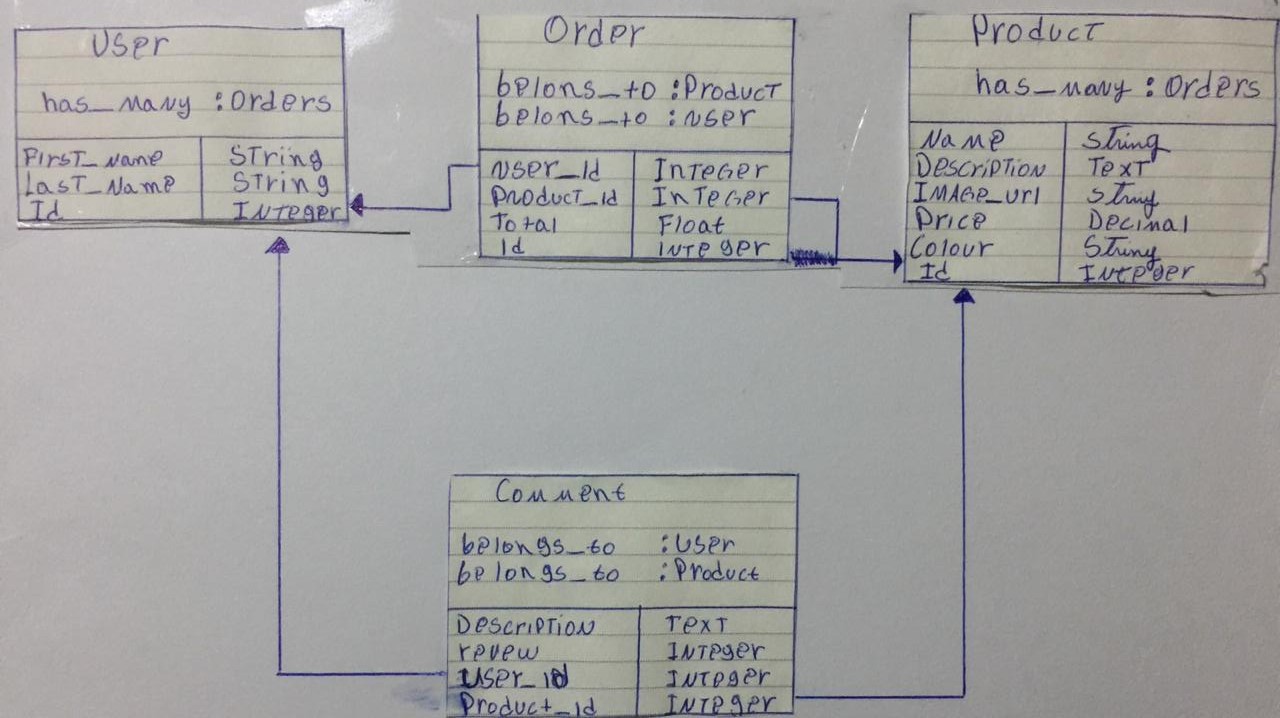 User
has_many :Orders
First_Name String
Last_Name String
Id Integer
Order
belons_to :Product
belons_to :user
user_Id Integer
Product_id Integer
Total Float
Id Integer
Product
has_many :Orders
Name String
Description Text
Image_url String
Price Decinal
Colour String
Id Integer
Comment
belongs_to :User
belongs_to :Product
Description Text
revew Integer
User_id Integer
Product_id Integer